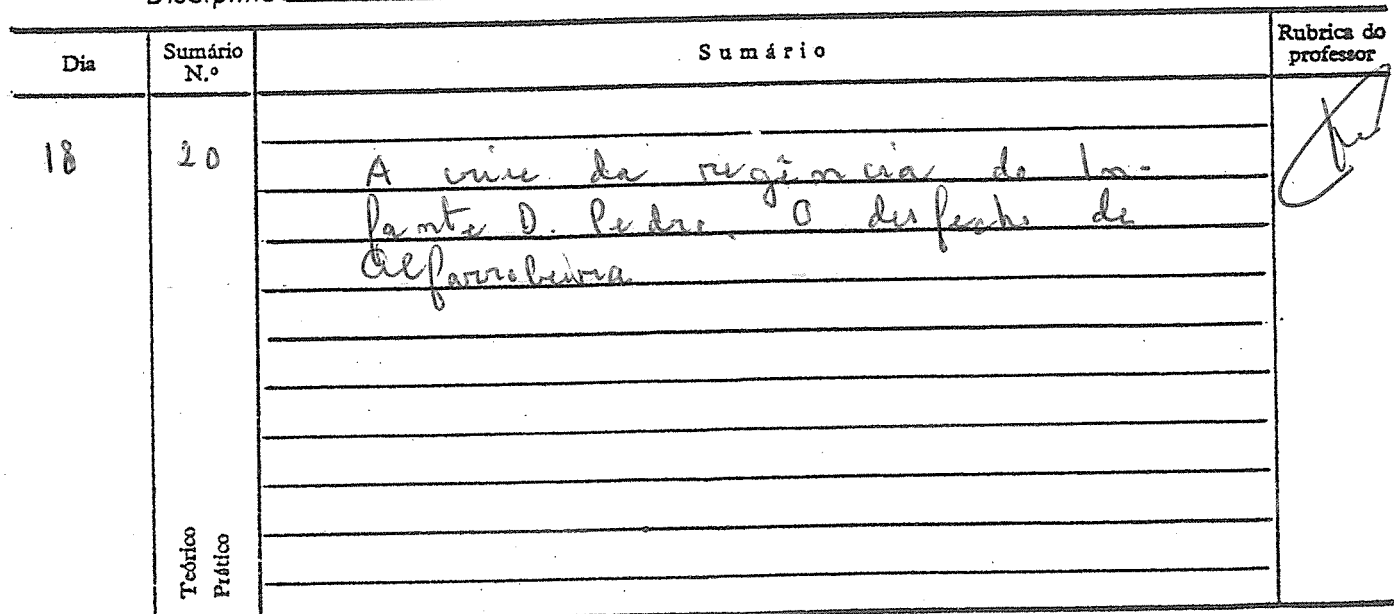 Disciplina
Dia
Sumário N.º
Sumário
Rubrica do professor
18
20
A crise da regência do In-
fante D. Pedro. O desfecho de
Alfarrobeira
Teórico
Prático